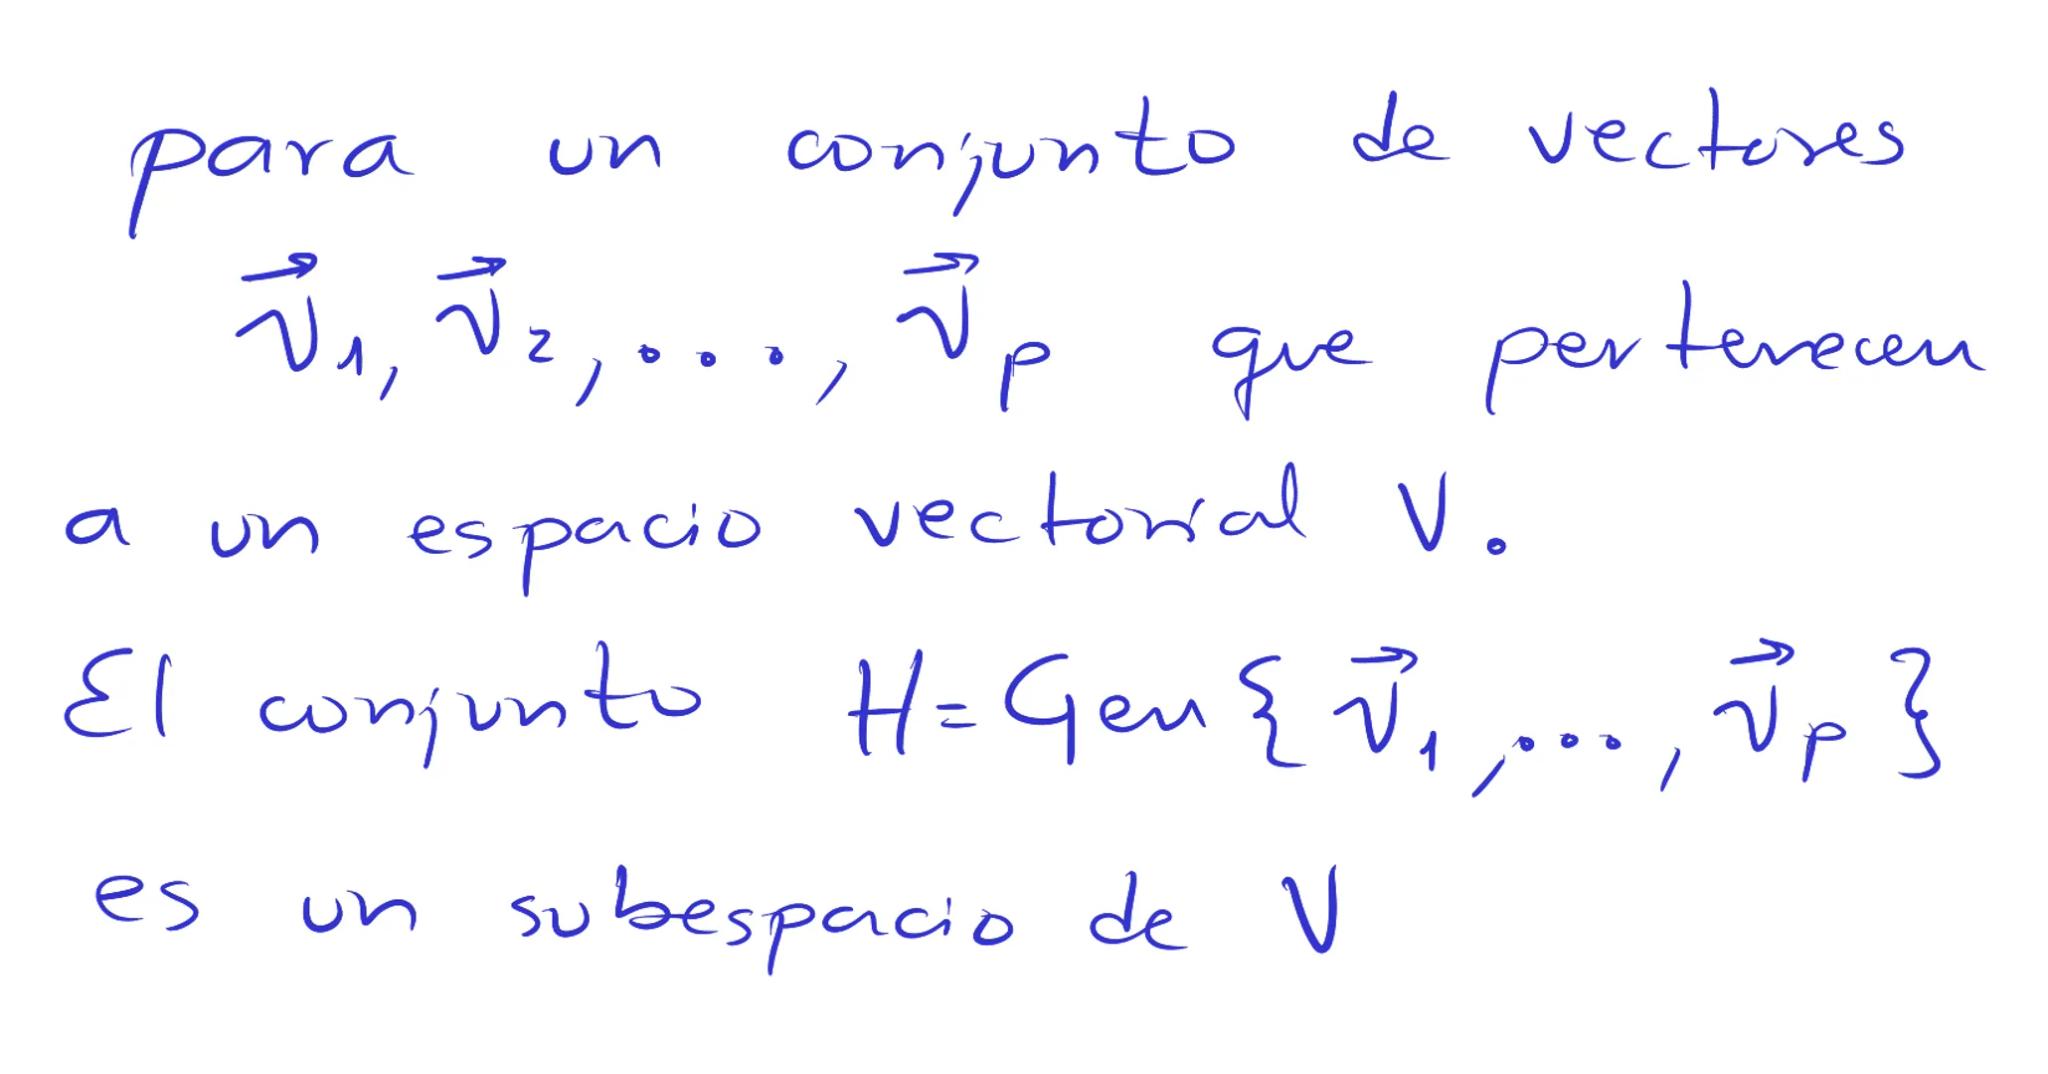 para un conjunto de vectores
v⃗₁, v⃗₂, ..., v⃗ₚ que pertenecen
a un espacio vectorial V.
El conjunto H=Gen{v⃗₁, ..., v⃗ₚ}
es un subespacio de V